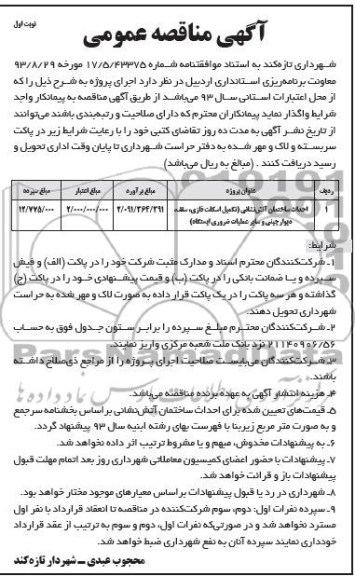 نوبت اول
آگهی مناقصه عمومی
شهرداری تازه‌کند به استناد موافقتنامه شماره ۱۷/۵/۴۳۳۷۵ مورخه ۹۳/۸/۲۹
معاونت برنامه‌ریزی استانداری اردبیل در نظر دارد اجرای پروژه به شرح ذیل را که
از محل اعتبارات استانی سال ۹۳ می‌باشد از طریق آگهی مناقصه به پیمانکار واجد
شرایط واگذار نماید پیمانکاران محترم که دارای صلاحیت و رتبه‌بندی باشند می‌توانند
از تاریخ نشر آگهی به مدت ده روز تقاضای کتبی خود را با رعایت شرایط زیر در پاکت
سربسته و لاک و مهر به دفتر حراست شهرداری تا پایان وقت اداری تحویل و
رسید دریافت کنند. (مبالغ به ریال می‌باشد)
ردیف عنوان پروژه مبلغ برآورد مبلغ اعتبار مبلغ سپرده
۱ احداث ساختمان آتش‌نشانی (تکمیل اسکلت فلزی، سقف، ۲/۰۹۱/۳۶۴/۳۹۱ ۲/۰۰۰/۰۰۰/۰۰۰ ۱۲/۷۷۵/۰۰۰
دیوارچینی و سایر عملیات ضروری ایستگاه)
شرایط:
۱ـ شرکت‌کنندگان محترم اسناد و مدارک مثبت شرکت خود را در پاکت (الف) و فیش
سپرده و یا ضمانت بانکی را در پاکت (ب) و قیمت پیشنهادی خود را در پاکت (ج)
گذاشته و هر سه پاکت را در یک پاکت قرار داده به صورت لاک و مهر شده به حراست
شهرداری تحویل دهند.
۲ـ شرکت‌کنندگان محترم مبلغ سپرده را برابر ستون جدول فوق به حساب
۲۱۱۴۰۹۰۶/۵۶ نزد بانک ملت شعبه مرکزی واریز نمایند.
۳ـ شرکت‌کنندگان می‌بایست صلاحیت اجرای پروژه را از مراجع ذی‌صلاح داشته
باشند.
۴ـ هزینه انتشار آگهی به عهده برنده مناقصه می‌باشد.
۵ـ قیمت‌های تعیین شده برای احداث ساختمان آتش‌نشانی براساس بخشنامه سرجمع
و به صورت متر مربع زیربنا با فهرست بهای رشته ابنیه سال ۹۳ پیشنهاد گردد.
۶ـ به پیشنهادات مخدوش، مبهم و یا مشروط ترتیب اثر داده نخواهد شد.
۷ـ پیشنهادات با حضور اعضای کمیسیون معاملاتی شهرداری روز بعد اتمام مهلت قبول
پیشنهادات باز و قرائت خواهد شد.
۸ـ شهرداری در رد یا قبول پیشنهادات براساس معیارهای موجود مختار خواهد بود.
۹ـ سپرده نفرات اول، دوم، سوم شرکت‌کننده در مناقصه تا انعقاد قرارداد با نفر اول
مسترد نخواهد شد و در صورتی‌که نفرات اول، دوم و سوم به ترتیب از عقد قرارداد
خودداری نمایند سپرده آنان به نفع شهرداری ضبط خواهد شد.
محجوب عبدی ـ شهردار تازه‌کند